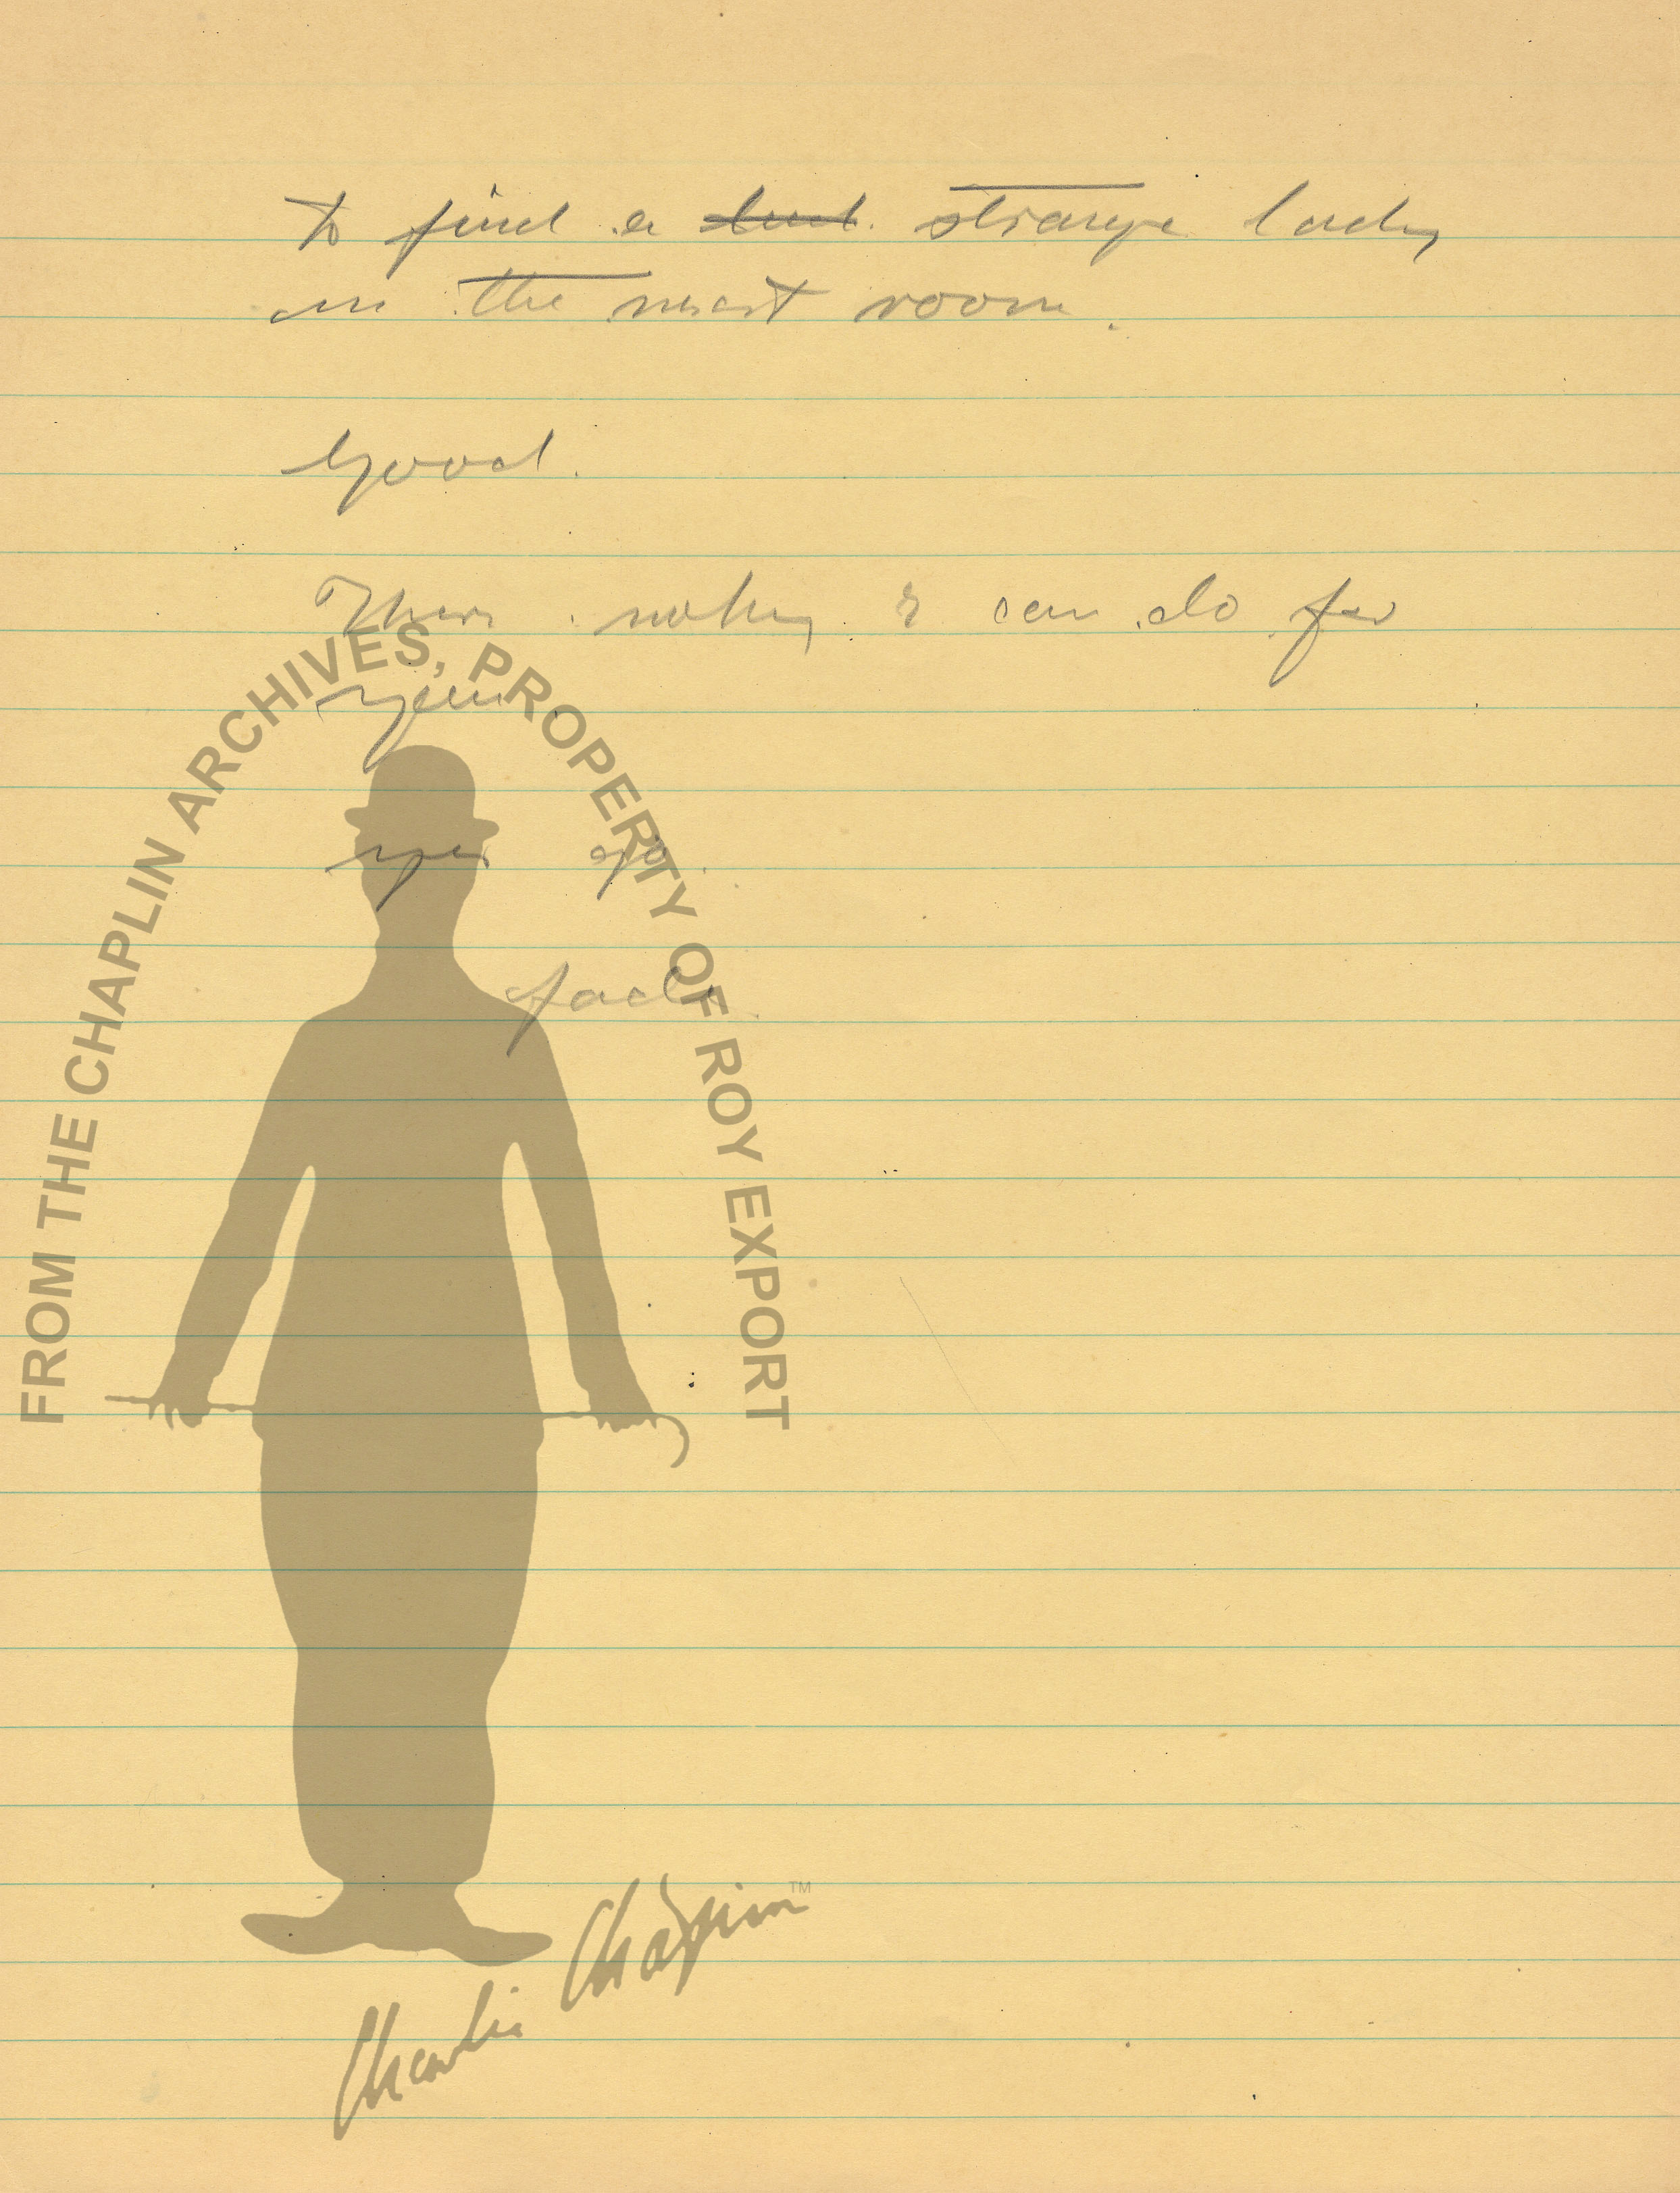 to find a strange lady
in the next room.
Good.
There nothing I can do for
you
yes go.
fade.
FROM THE CHAPLIN ARCHIVES, PROPERTY OF ROY EXPORT
Charlie Chaplin™